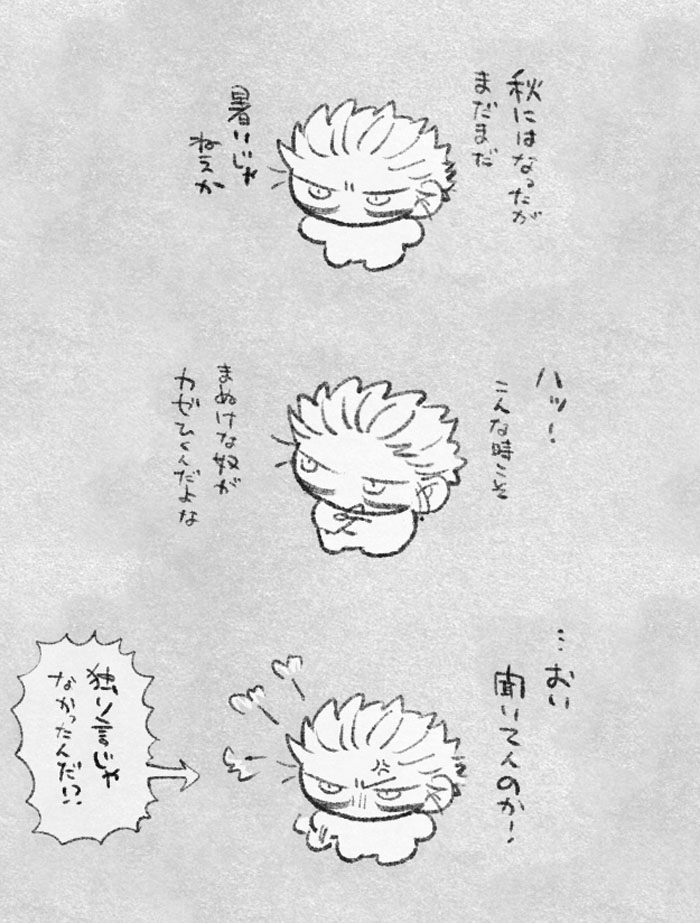 秋にはなったが
まだまだ
暑いじゃ
ねえか
ハッ!
こんな時こそ
まぬけな奴が
カゼひくんだよな
…おい
聞いてんのか!
独り言じゃ
なかったんだ!?